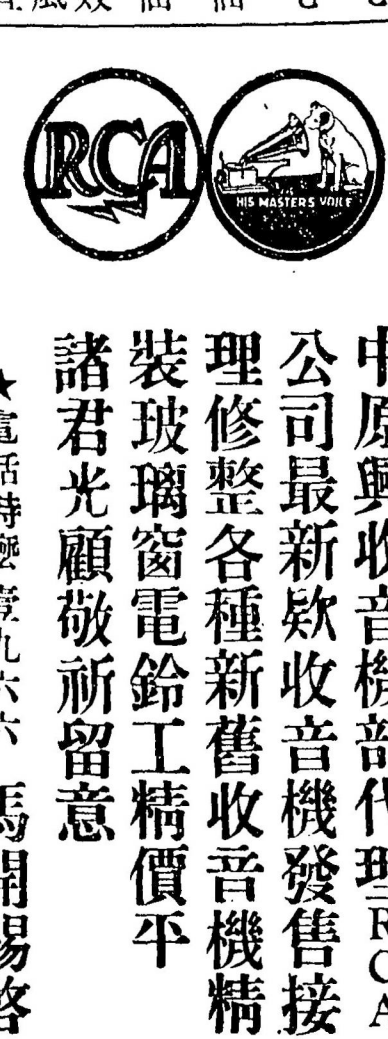 RCA
HIS MASTER'S VOICE
中原興收音機部代理RCA
公司最新欵收音機發售接
理修整各種新舊收音機精
裝玻璃窗電鈴工精價平
諸君光顧敬祈留意
★電話詩巫壹九六六 馬開錫啓